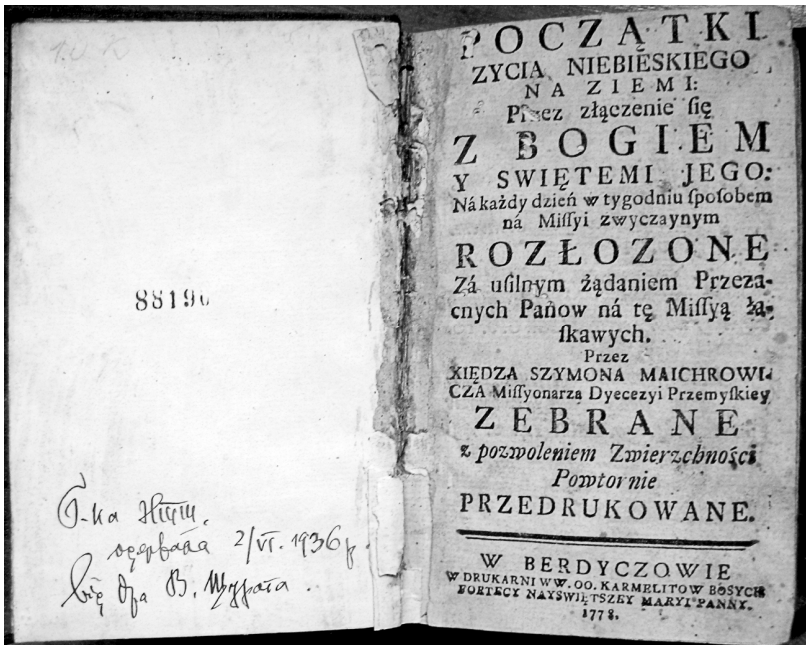 88190
2/VI. 1936 р.
від дра В. Щурата.
POCZĄTKI
ZYCIA NIEBIESKIEGO
NA ZIEMI:
Przez złączenie się
Z BOGIEM
Y SWIĘTEMI JEGO:
Ná każdy dzień w tygodniu ſpoſobem
ná Miſſyi zwyczaynym
ROZŁOZONE
Zá uſilnym żądaniem Przeza-
cnych Pánow ná tę Miſſyą łá-
ſkawych.
Przez
XIĘDZA SZYMONA MAICHROWI-
CZA Miſſyonarza Dyecezyi Przemyſkiey
ZEBRANE
z pozwoleniem Zwierzchności
Powtornie
PRZEDRUKOWANE.
W BERDYCZOWIE
W DRUKARNI WW. OO. KARMELITOW BOSYCH
FORTECY NAYSWIĘTSZEY MARYI PANNY.
1778.